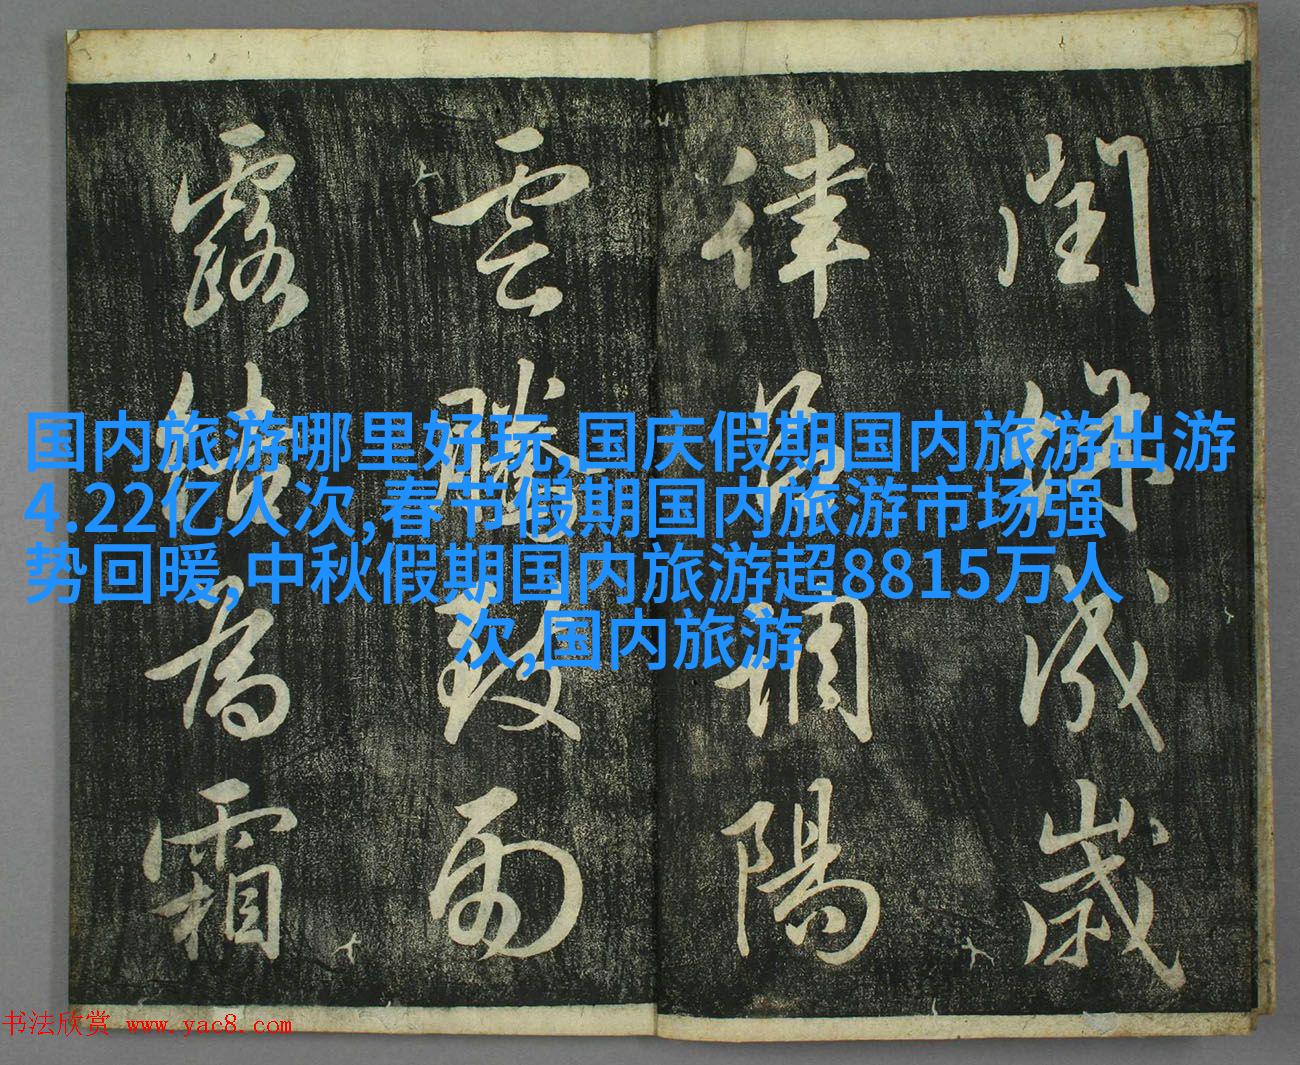 閏餘成歲
律呂調陽
雲騰致雨
露結為霜
国内旅游哪里好玩,国庆假期国内旅游出游
4.22亿人次,春节假期国内旅游市场强
势回暖,中秋假期国内旅游超8815万人
次,国内旅游
书法欣赏 www.yac8.com